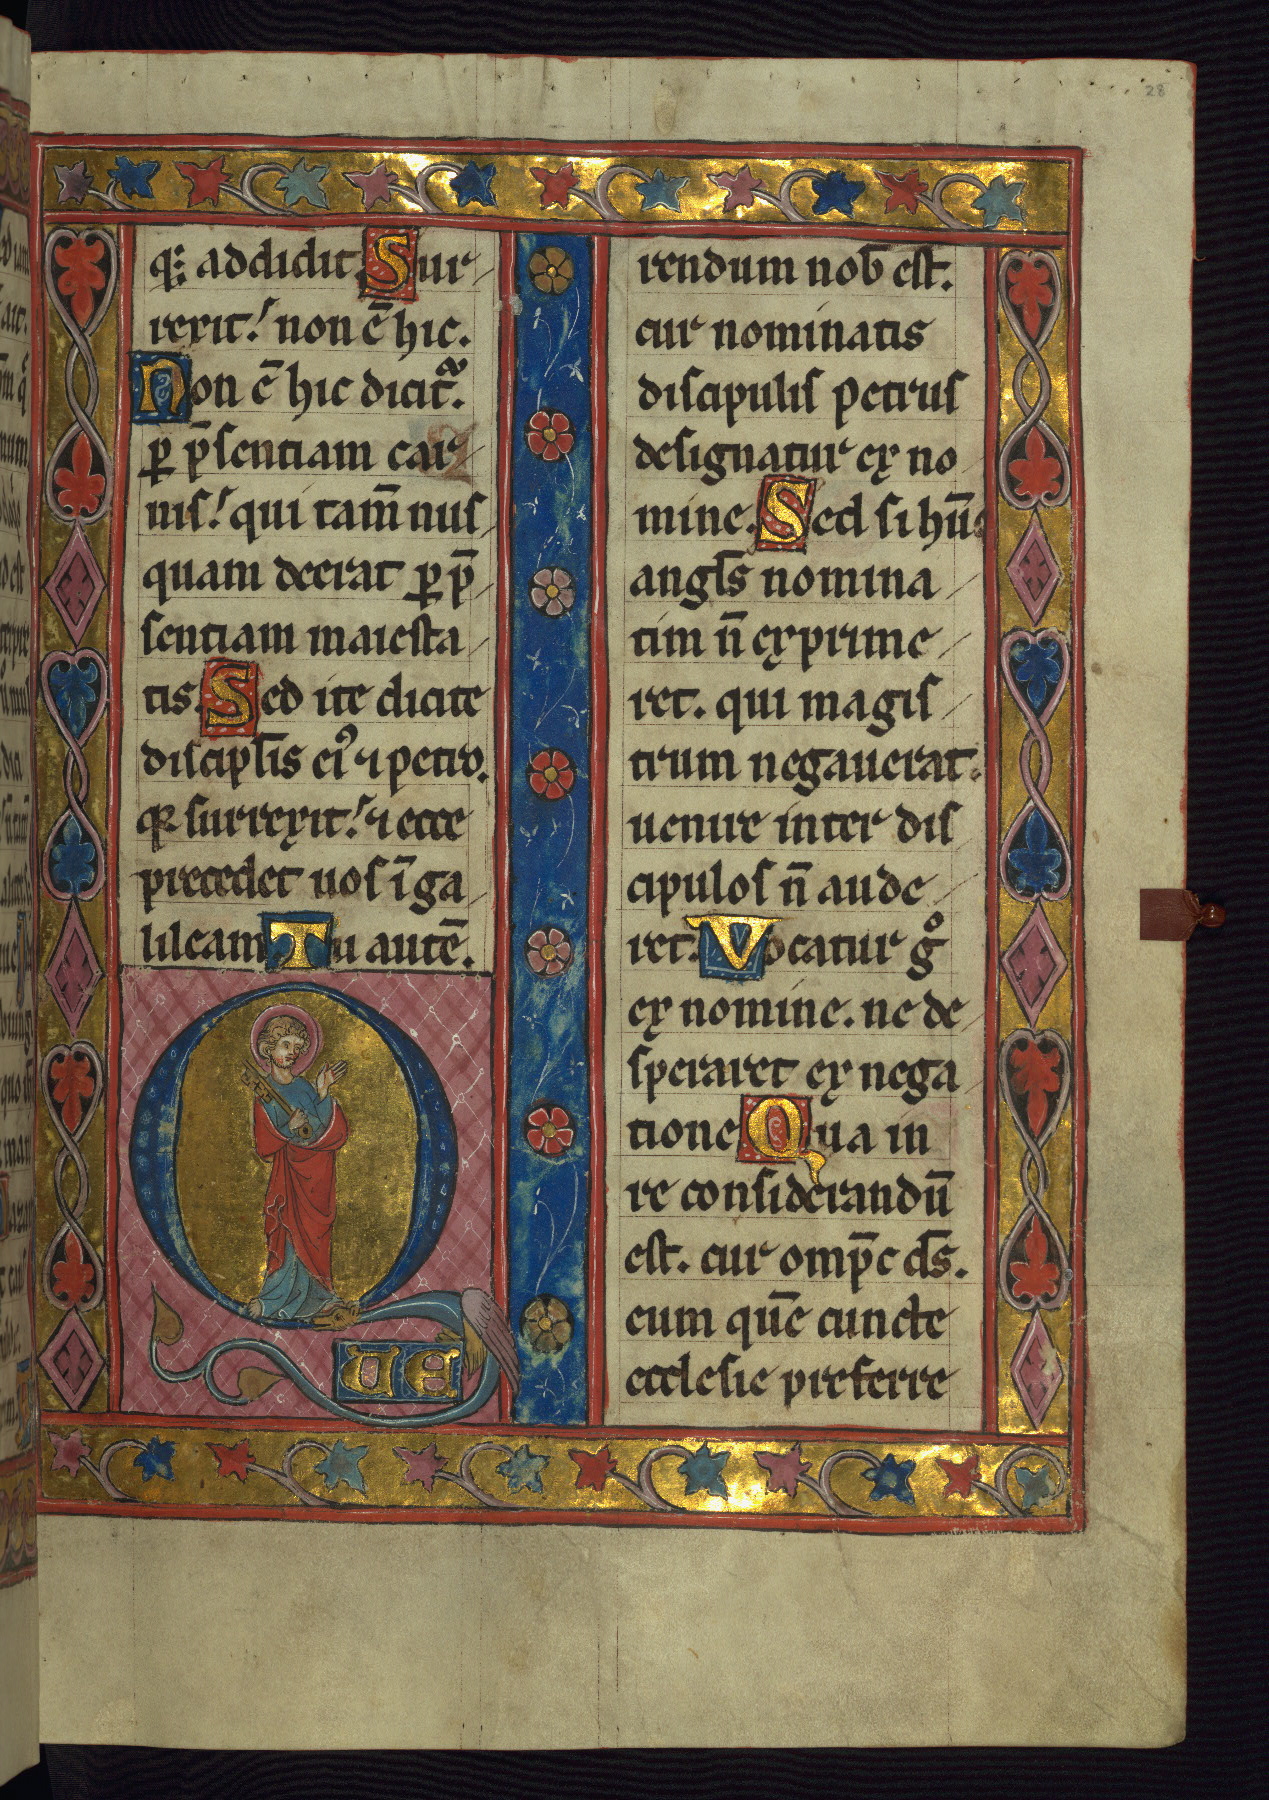 28
q; addidit. Sur
rexit! non ē hic.
Non ē hic dicit᷑.
ꝑ p̄sentiam car
nis! qui tam̄ nus
quam deerat ꝑ p̄
sentiam maiesta
tis. Sed ite dicite
discipl̄is eiꝰ ⁊ petro.
surrexit! ⁊ ecce
precedet uos ī ga
lileam. Tu autē.
Q
UE
rendum nob̄ est.
cur nominatis
discipulis petrus
designatur ex no
mine. Sed si hūc
angl̄s nomina
tim n̄ exprime
ret. qui magis
trum negauerat.
uenire inter dis
cipulos n̄ aude
ret. Vocatur gͦ
ex nomine. ne de
speraret ex nega
tione. Qua in
re considerandū
est. cur omp̄c d̄s.
eum quē cuncte
ecclesie preferre